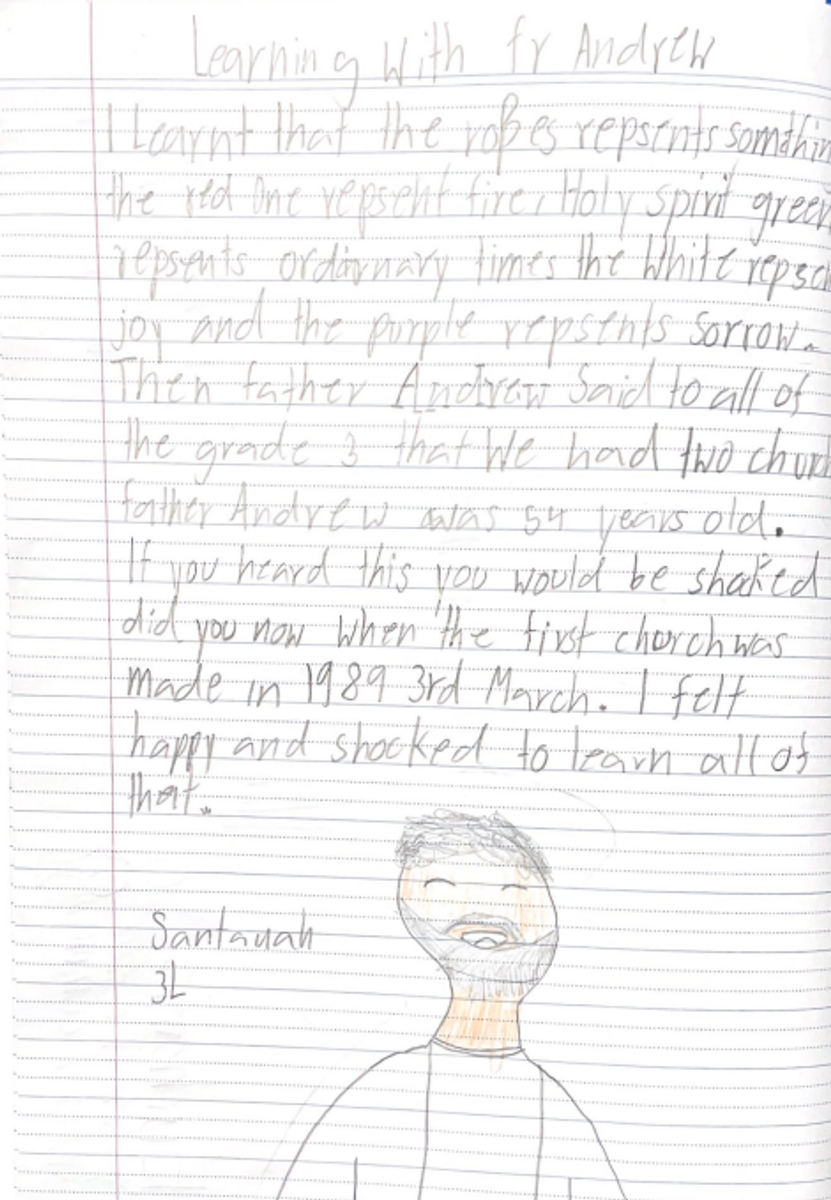 Learning With fr Andrew
I Learnt that the robes repsents somthin
the red One repsent fire, Holy spirit green
repsents ordarnary times the White repse
joy and the purple repsents sorrow.
Then father Andrew Said to all of
the grade 3 that We had two churc
father Andrew was 54 years old.
If you heard this you would be shaked
did you now when the first church was
made in 1989 3rd March. I felt
happy and shocked to learn all of
that.
3L